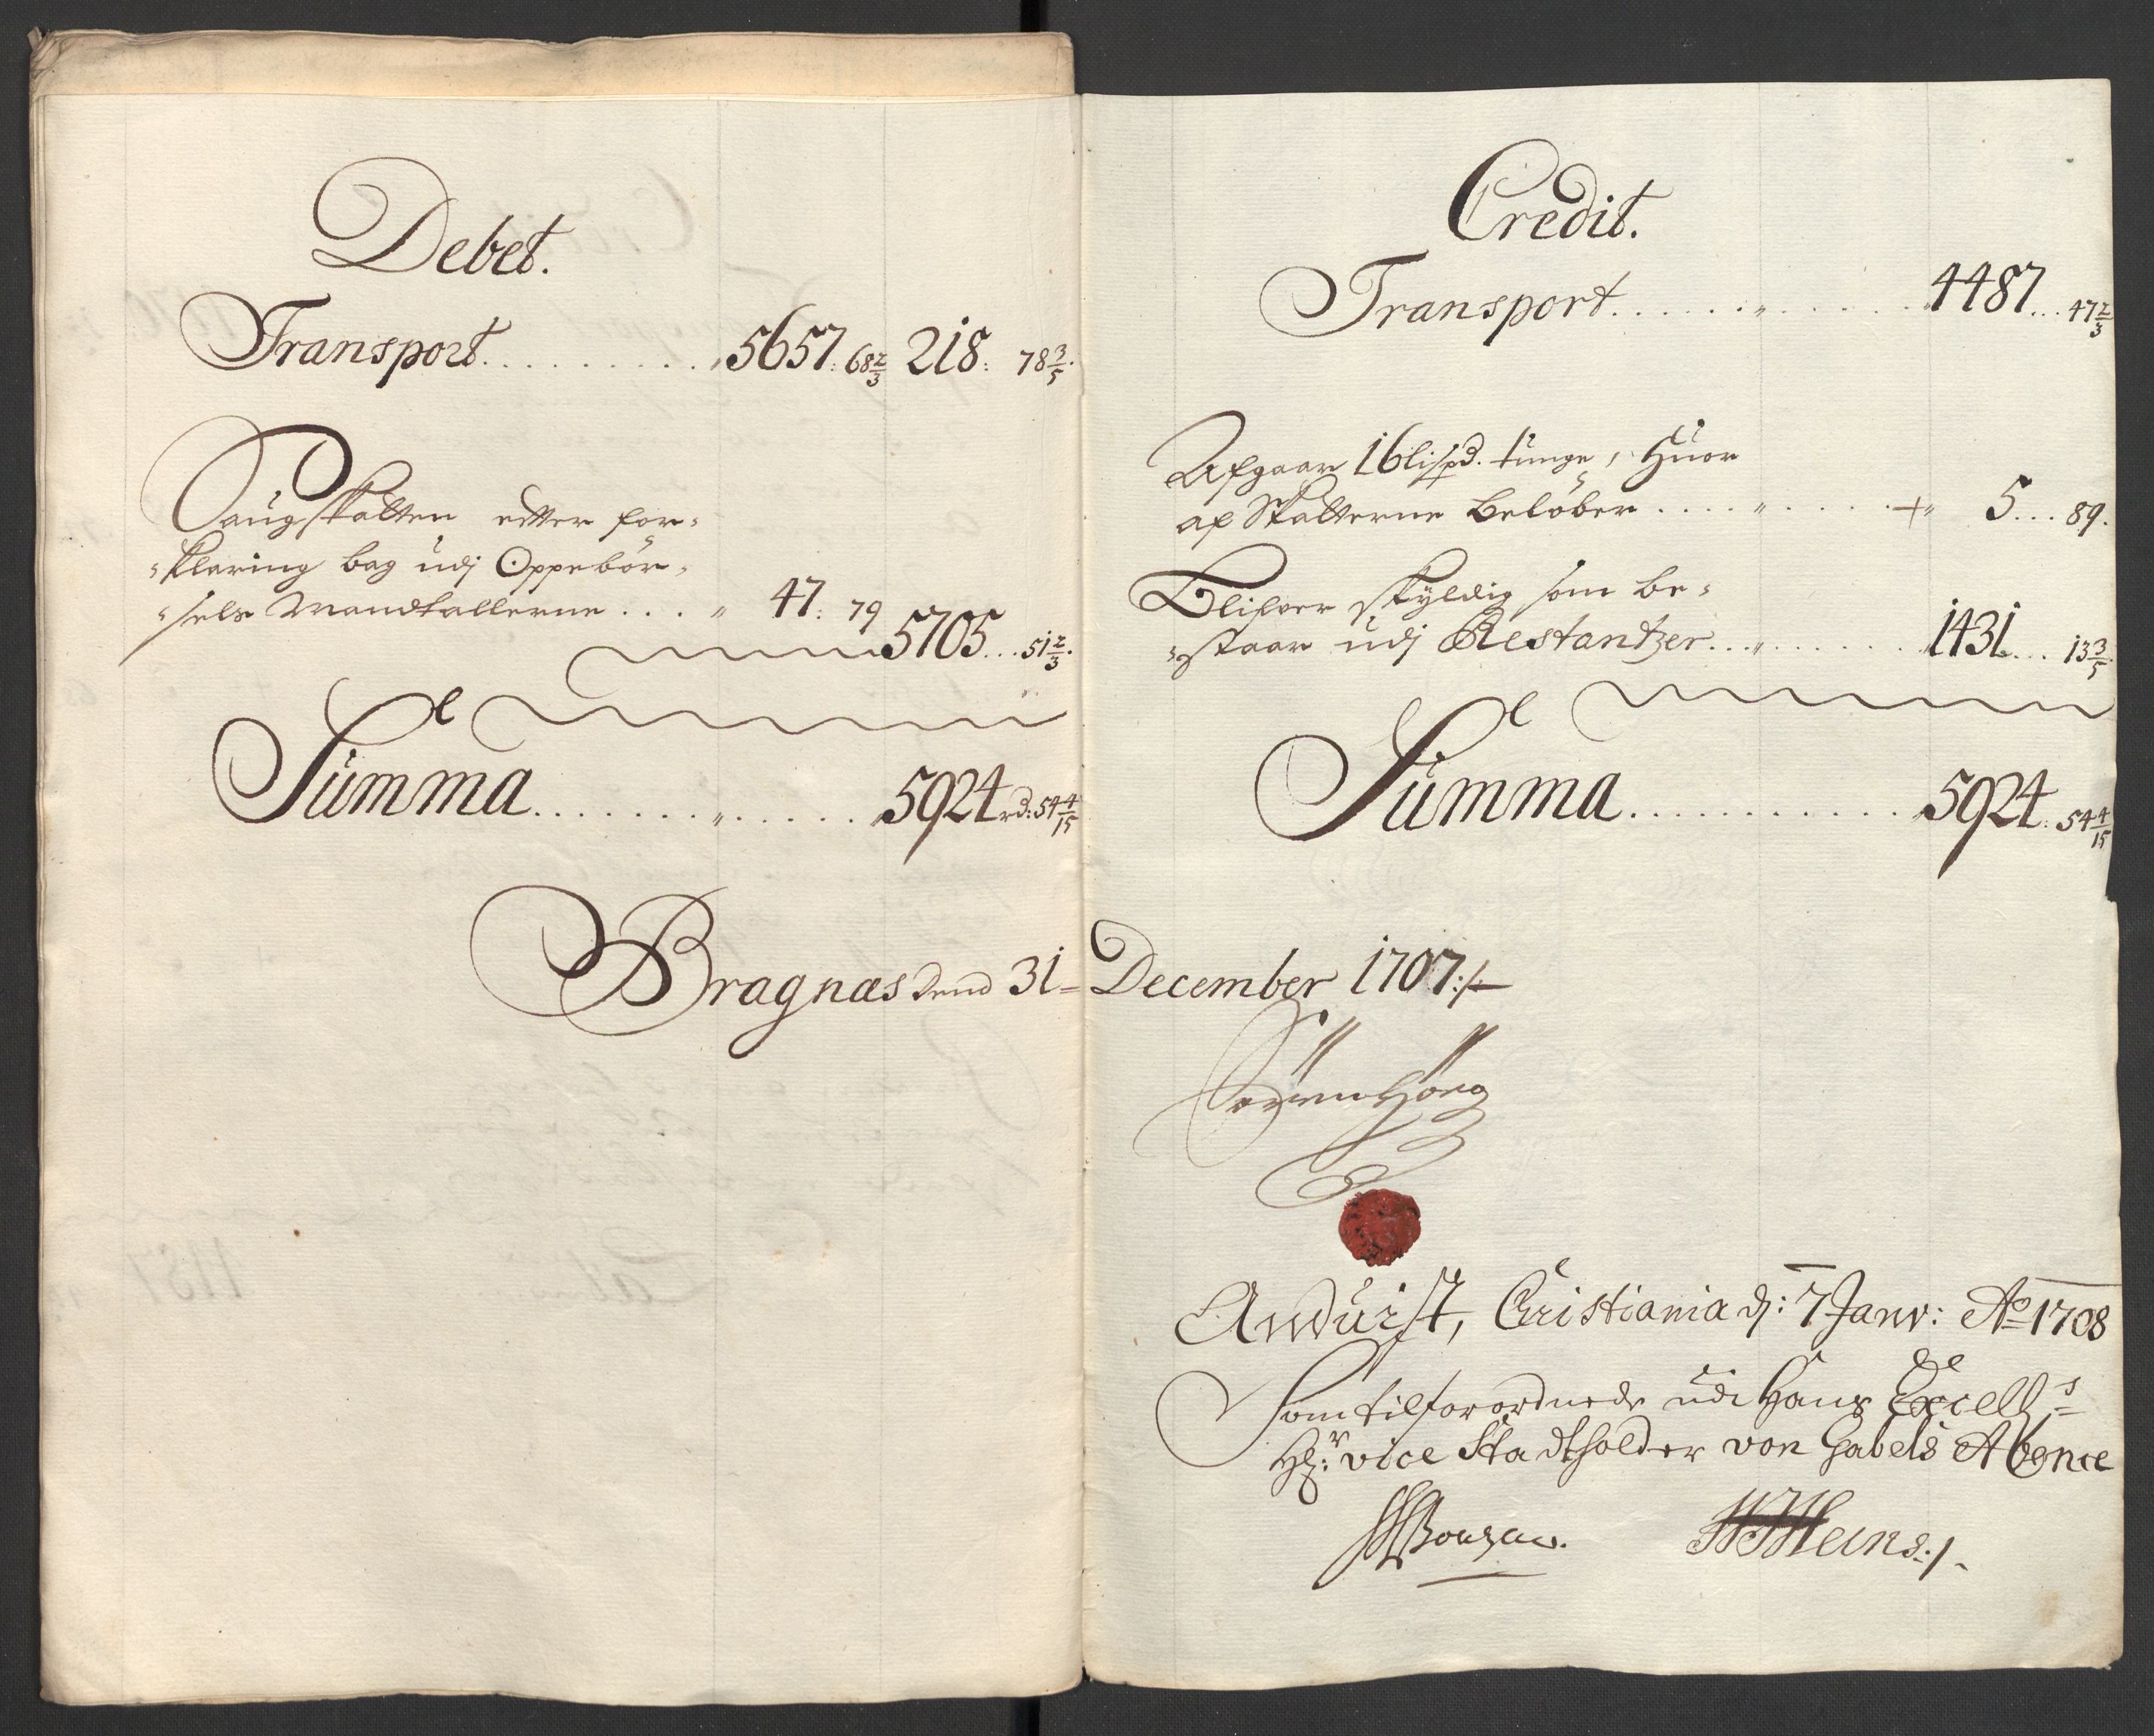 Debet.
Transport. . . . . . . . . . 5657: 68 2/3 218: 78 3/5.
Saugskatten efter for=
=klaring bag udj Oppebør=
=sels Mandtallerne . . . " 47: 79
5705... 51 2/3.
Summa. . . . . . . " . . . . . 5924 rd: 54 4/15
Bragnæs dend 31=
Credit.
Transport. . . . . . " . . . . . 4487... 47 2/3
Afgaar 16 lispd. tunge, Huor
af Skatterne beløber . . . . " . . . . + " 5... 89.
Blifver skyldig som be=
=staar udj Restantzer. . . " . . . . . . 1431... 13 3/5.
Summa. . . . . . . . . . . . 5924: 54 4/15
December 1707:/-
Søren Høeg
Christiania dj: 7 Janv: Ao 1708
Som tilforordnede udi Hans Excell:s
Hr: vice Stadtholder von Gabels Absence